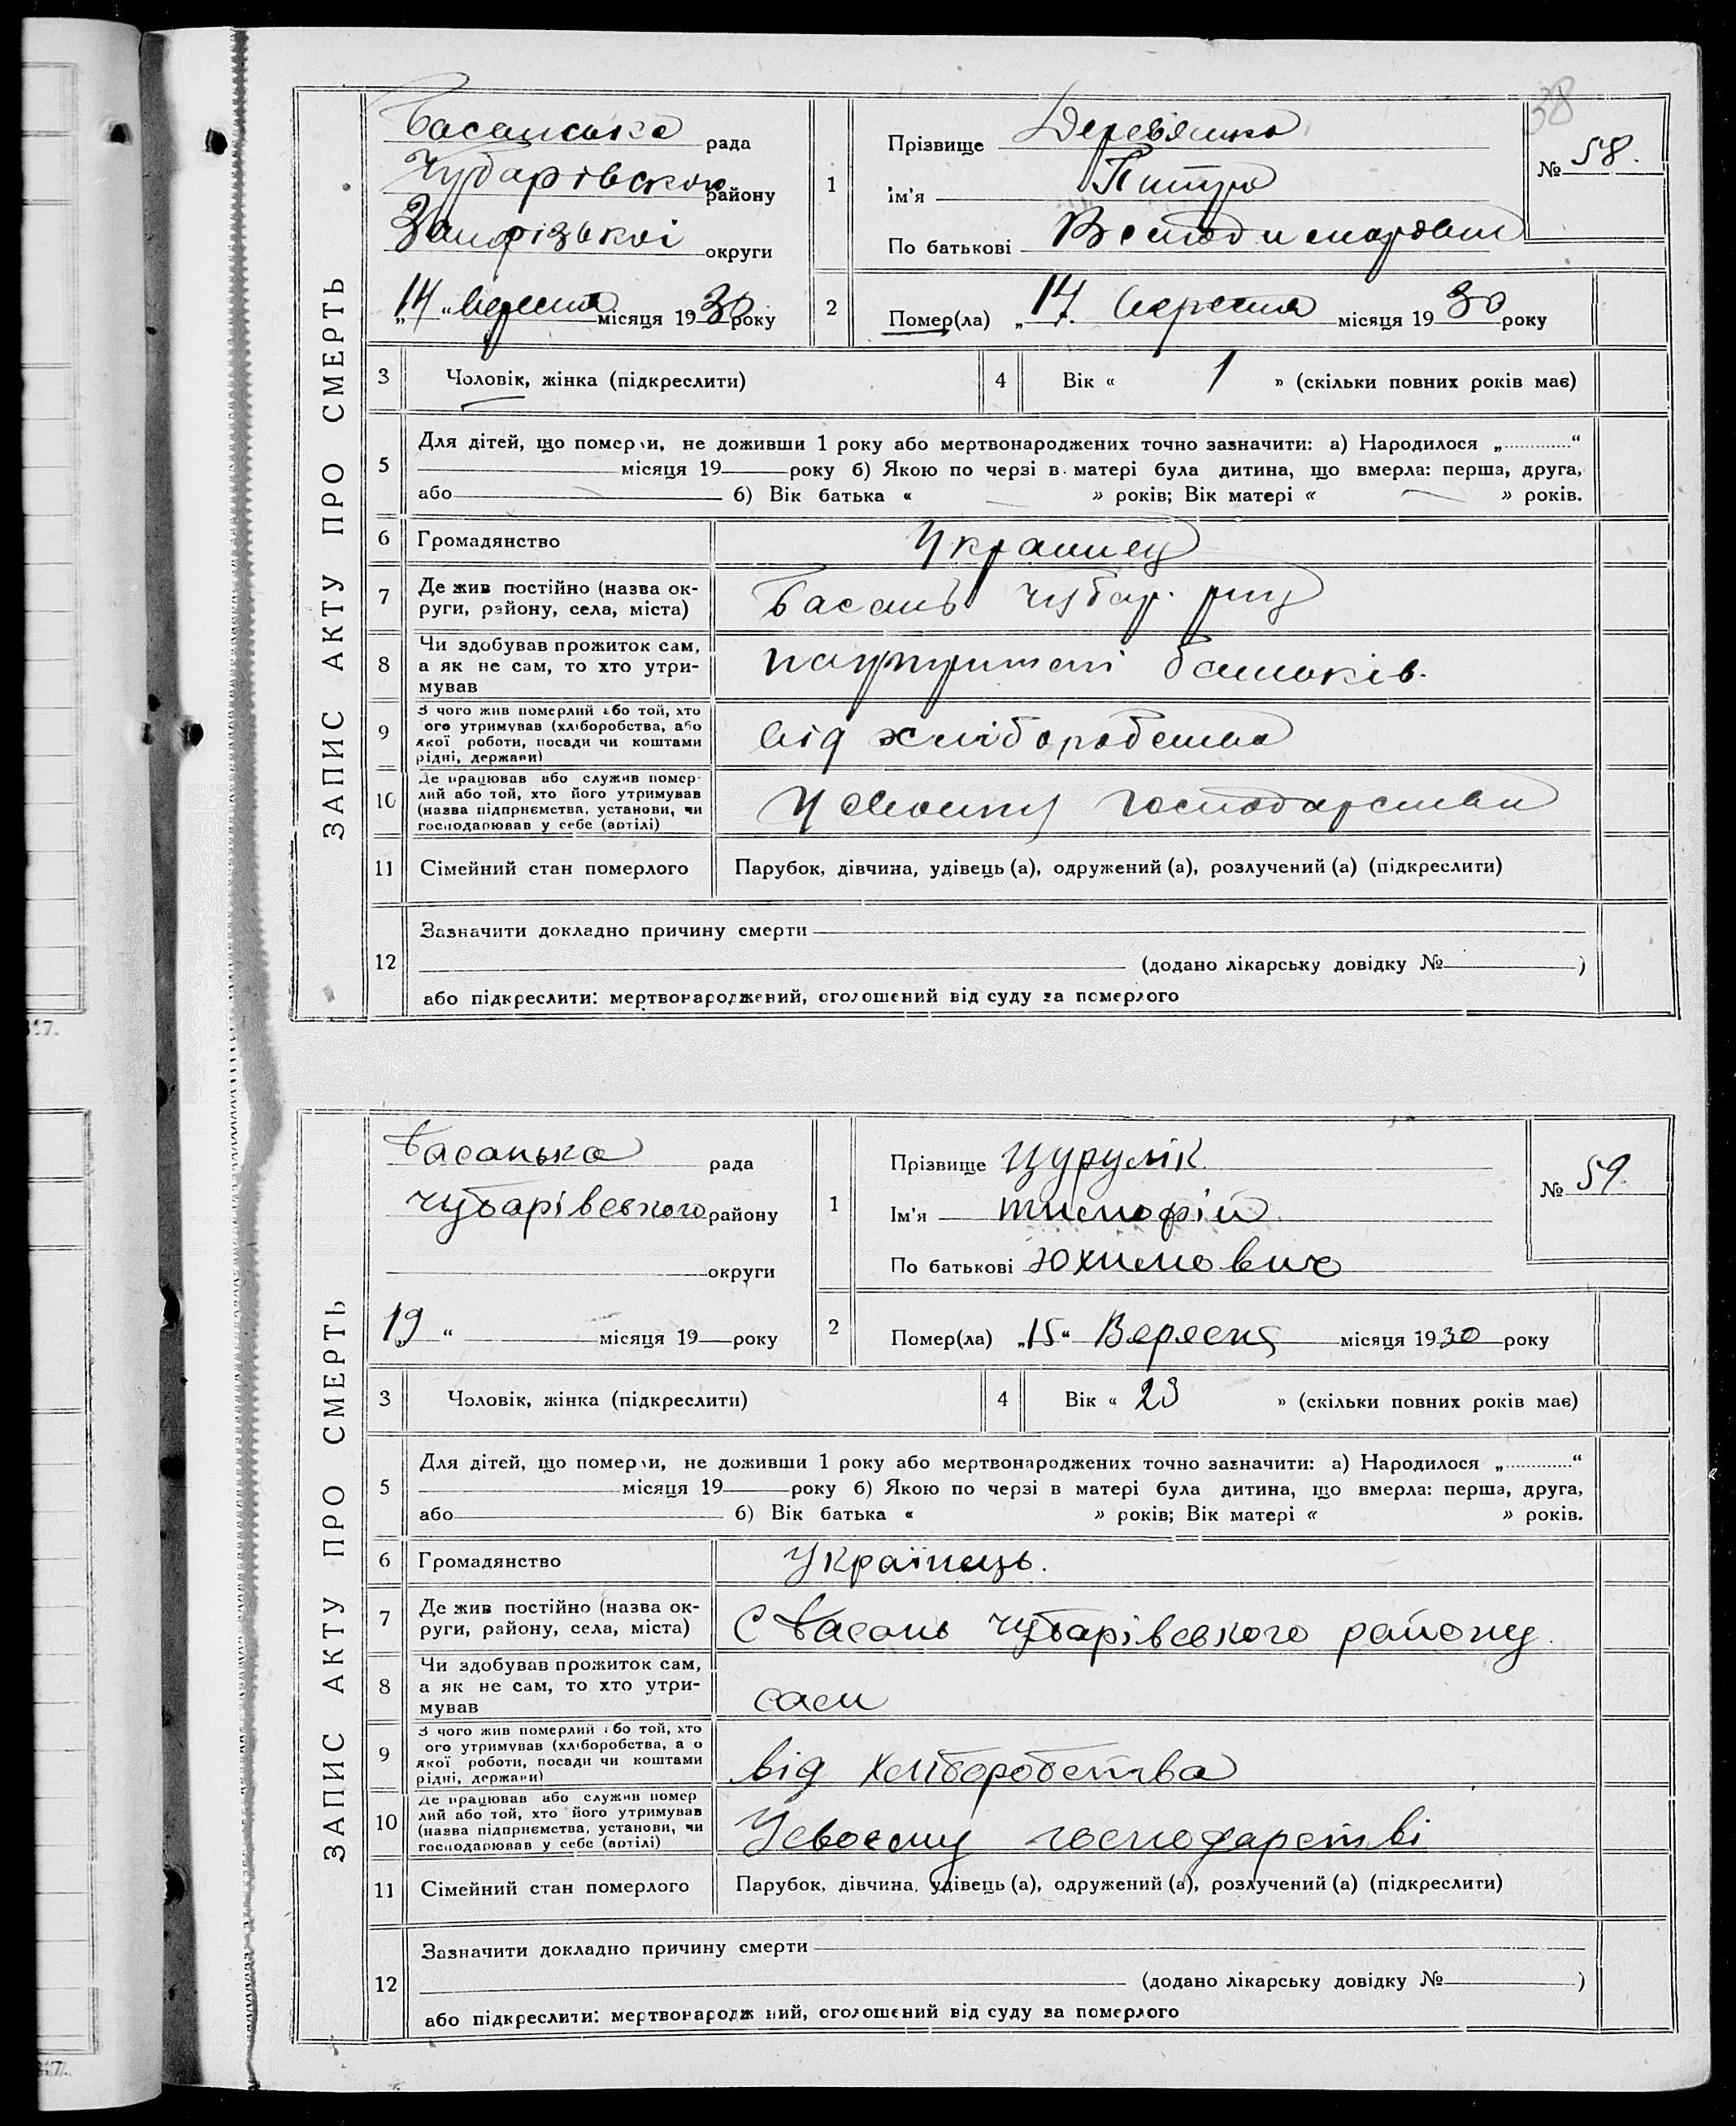 38
ЗАПИС АКТУ ПРО СМЕРТЬ
Басанська рада
Чубарівского району
Запорізькоі округи
„14“ вересня місяця 1930 року
1
Прізвище Деревянко
Ім'я Питро
По батькові
№ 58.
2
Помер(ла) „14 вересня місяця 1930 року
3
Чоловік, жінка (підкреслити)
4
Вік « 1 » (скільки повних років має)
5
Для дітей, що померли, не доживши 1 року або мертвонароджених точно зазначити: а) Народилося „ “
місяця 19 року б) Якою по черзі в матері була дитина, що вмерла: перша, друга,
або б) Вік батька « » років; Вік матері « » років.
6
Громадянство
Украинец
7
Де жив постійно (назва ок-
руги, району, села, міста)
Басань Чубар. рну
8
Чи здобував прожиток сам,
а як не сам, то хто утри-
мував
батьків.
9
З чого жив померлий або той, хто
ого утримував (хліборобства, або
якої роботи, посади чи коштами
рідні, держави)
від хліборобства
10
Де працював або служив помер-
лий або той, хто його утримував
(назва підприємства, установи, чи
господарював у себе (артілі)
У своєму господарстви
11
Сімейний стан померлого
Парубок, дівчина, удівець (а), одружений (а), розлучений (а) (підкреслити)
12
Зазначити докладно причину смерти
(додано лікарську довідку № )
або підкреслити: мертвонароджений, оголошений від суду за померлого
ЗАПИС АКТУ ПРО СМЕРТЬ
Басанька рада
Чубарівського району
округи
„19 “ місяця 19 року
1
Прізвище Цурулік
Ім'я тимофій
По батькові Юхимович
№ 59
2
Помер(ла) „15“ Вересня місяця 1930 року
3
Чоловік, жінка (підкреслити)
4
Вік « 23 » (скільки повних років має)
5
Для дітей, що померли, не доживши 1 року або мертвонароджених точно зазначити: а) Народилося „ “
місяця 19 року б) Якою по черзі в матері була дитина, що вмерла: перша, друга,
або б) Вік батька « » років; Вік матері « » років.
6
Громадянство
Українець.
7
Де жив постійно (назва ок-
руги, району, села, міста)
С Басань Чубарівського району.
8
Чи здобував прожиток сам,
а як не сам, то хто утри-
мував
сам
9
З чого жив померлий або той, хто
ого утримував (хліборобства, або
якої роботи, посади чи коштами
рідні, держави)
від хліборобства
10
Де працював або служив помер
лий або той, хто його утримував
(назва підприємства, установи, чи
господарював у себе (артілі)
У своєму господарстві
11
Сімейний стан померлого
Парубок, дівчина, удівець (а), одружений (а), розлучений (а) (підкреслити)
12
Зазначити докладно причину смерти
(додано лікарську довідку № )
або підкреслити: мертвонародж ний, оголошений від суду за померлого